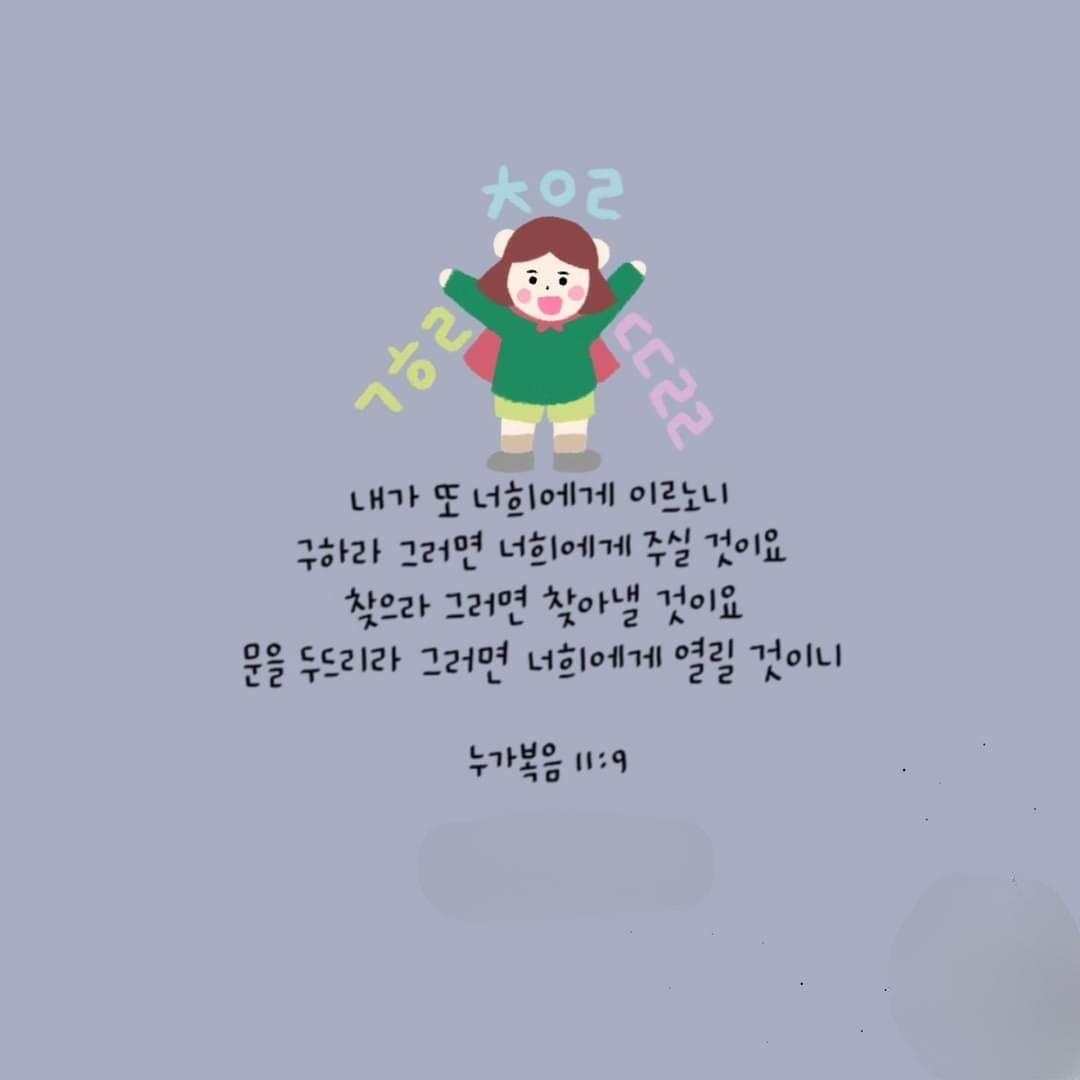 ㅊㅇㄹ
ㄱㅎㄹ
ㄷㄷㄹㄹ
내가 또 너희에게 이르노니
구하라 그러면 너희에게 주실 것이요
찾으라 그러면 찾아낼 것이요
문을 두드리라 그러면 너희에게 열릴 것이니
누가복음 11:9